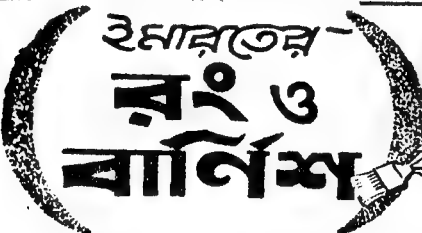 ইমারতের
রং ও
বার্নিশ